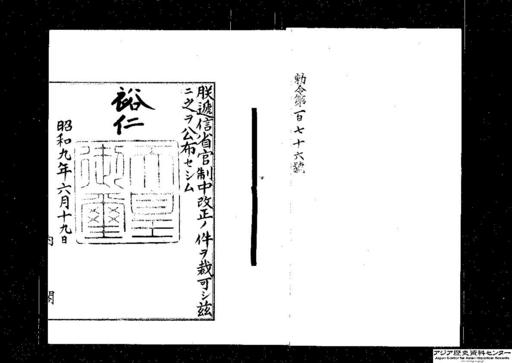 勅令第一百七十六號
朕遞信省官制中改正ノ件ヲ裁可シ茲
ニ之ヲ公布セシム
裕仁
天皇御璽
昭和九年六月十九日
内閣
アジア歴史資料センター
Japan Center for Asian Historical Records